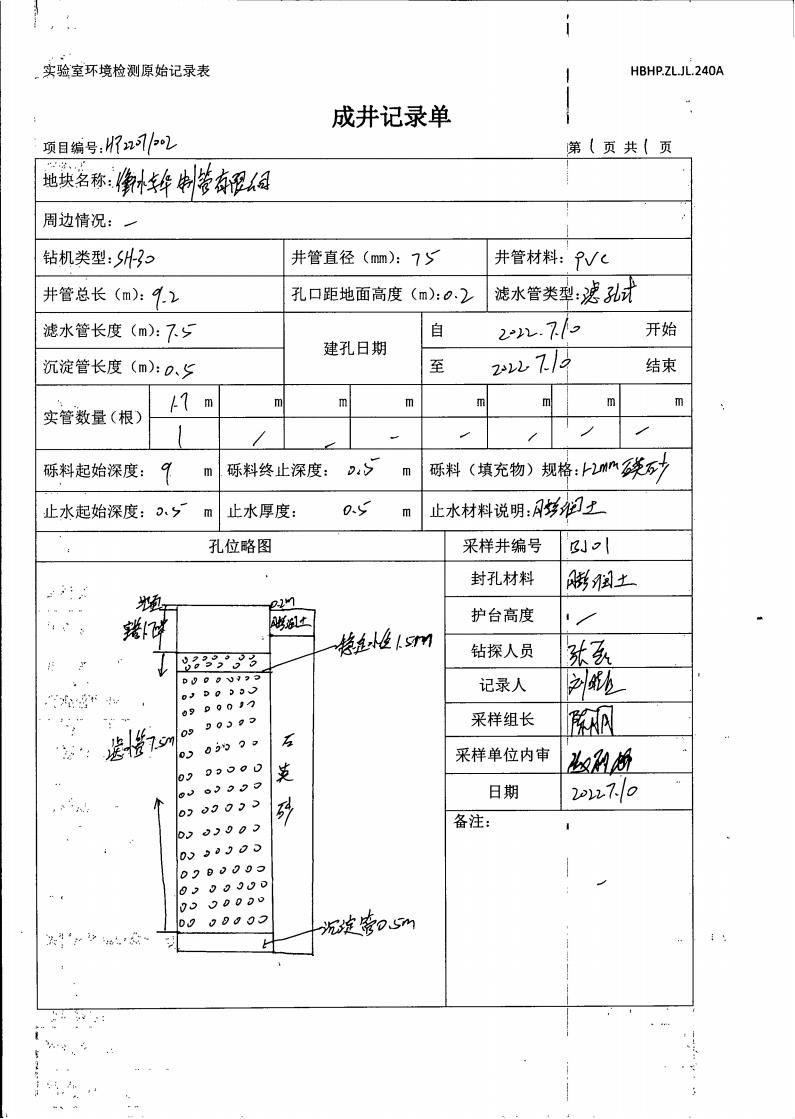 实验室环境检测原始记录表 HBHP.ZL.JL.240A
成井记录单
项目编号:HP22071002 第1页 共1页
地块名称:衡水 制管有限公司
周边情况: /
钻机类型:SH-30 井管直径(mm):75 井管材料:PVC
井管总长(m):9.2 孔口距地面高度(m):0.2 滤水管类型:滤孔式
滤水管长度(m):7.5 建孔日期 自 2022.7.10 开始
沉淀管长度(m):0.5 至 2022.7.10 结束
实管数量(根) 1.7 m m m m m m m m
1 / / / / / / /
砾料起始深度: 9 m 砾料终止深度: 0.5 m 砾料(填充物)规格:1-2mm石英砂
止水起始深度:0.5 m 止水厚度: 0.5 m 止水材料说明:膨润土
孔位略图 采样井编号 BJ01
封孔材料 膨润土
护台高度 /
钻探人员 张磊
记录人
采样组长
采样单位内审
日期 2022.7.10
备注:
/
地面
0.2m
膨润土
实管1.7m
稳定水位1.5m
滤水管7.5m
石英砂
沉淀管0.5m